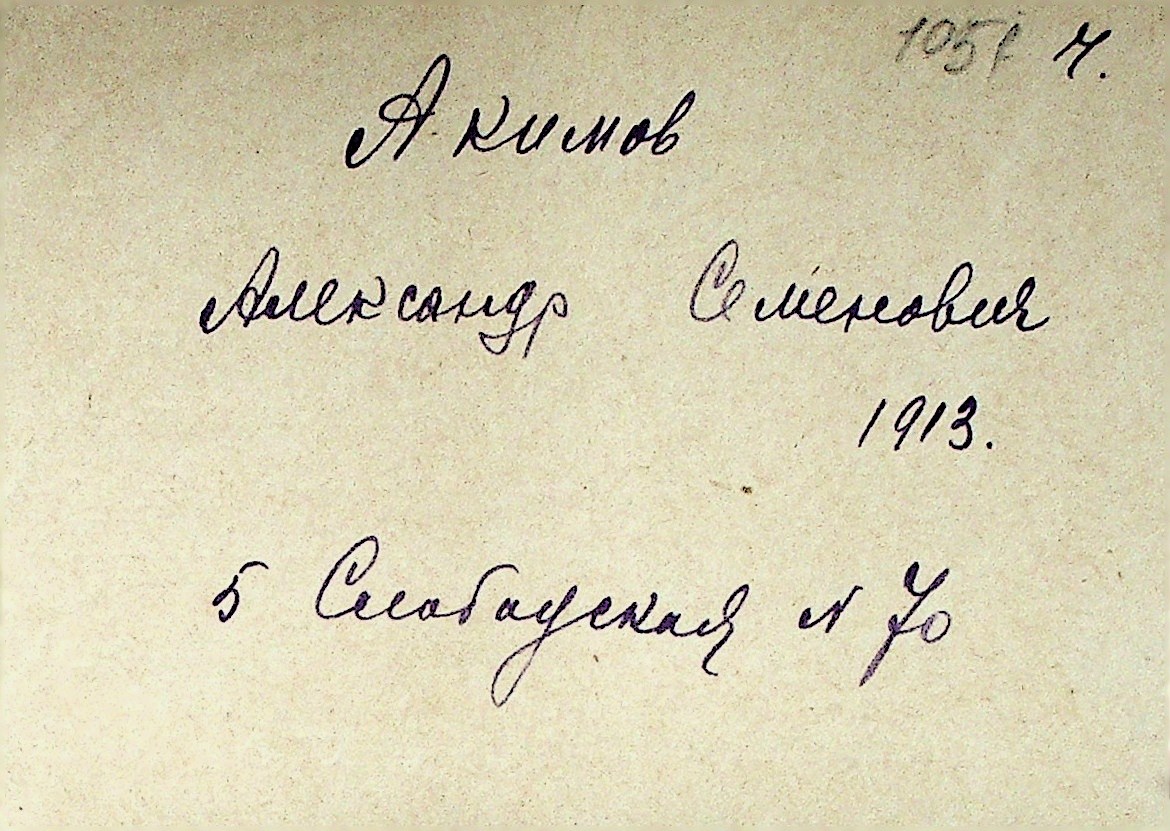 Ч.
Акимов
Александр Семенович
1913.
5 Слободская N 70